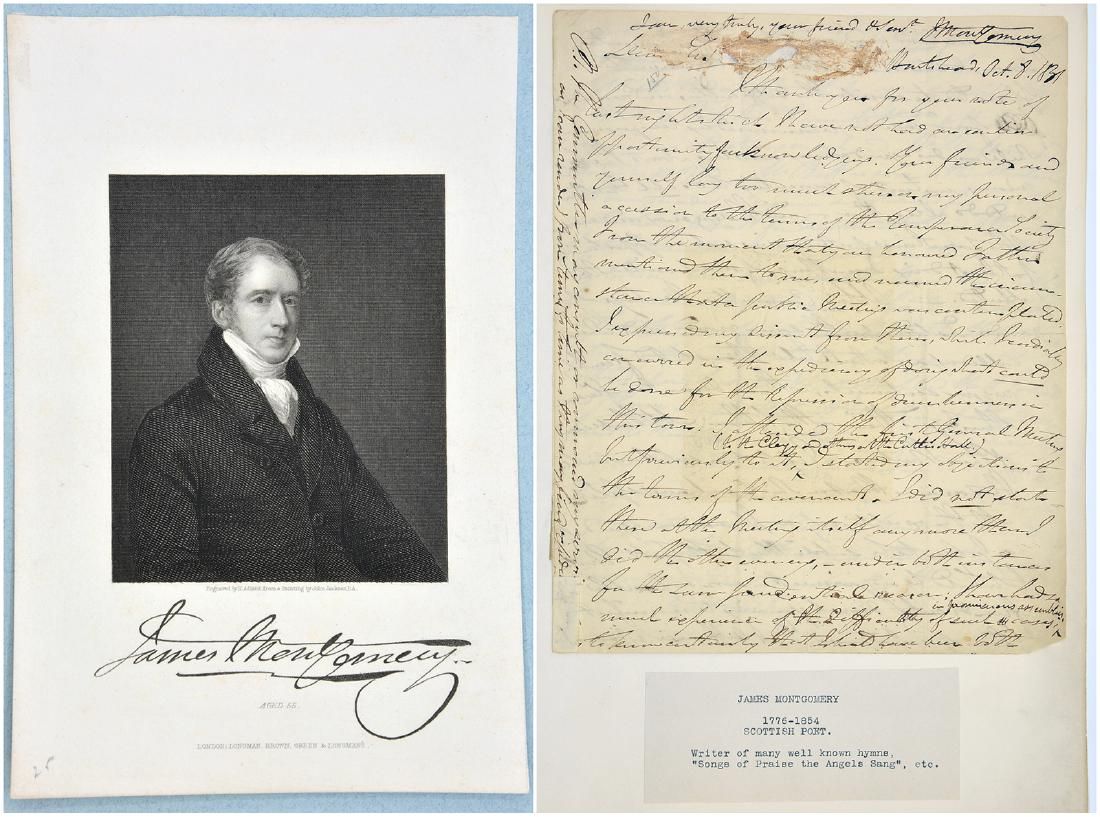 Engraved by H. Adlard from a Painting by John Jackson, R.A.
James Montgomery
AGED 55.
LONDON: LONGMAN, BROWN, GREEN & LONGMANS.
25
I am, very truly, your friend & servt. J Montgomery
Dear Sir,
Oct. 8. 1831
I thank you for your note of
last night which I have not had an earlier
opportunity of acknowledging. Your friends and
yourself lay too much stress on my personal
accession to the terms of the Temperance Society
From the moment that your honoured Father
mentioned them to me, and named the circum-
stance that a public Meeting was contemplated
I expressed my dissent from them, while I cordially
concurred in the expediency of doing what could
be done for the repression of drunkenness in
this town. I attended the first General Meeting
(of the Clergy and others at the Cutlers Hall,)
but previously to it, I stated my objections to
the terms of the covenant. I did not state
these at the Meeting itself any more than I
did the other evening, and in both instances
for the same reason; I have had so
in promiscuous assemblies
much experience of the difficulty of such cases,
to know that I should have been
JAMES MONTGOMERY
1776-1854
SCOTTISH POET.
Writer of many well known hymns,
"Songs of Praise the Angels Sang", etc.